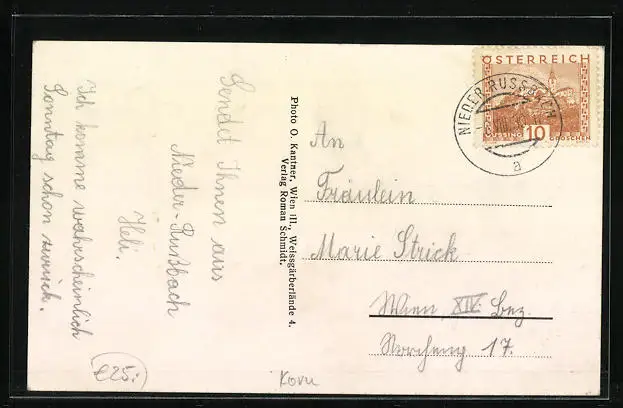 Sendet Ihnen aus
Nieder-Rußbach
Heli.
Ich komme wahrscheinlich
Sonntag schon zurück.
Photo O. Kantner, Wien III., Weissgärberlände 4.
Verlag Roman Schmidt.
ÖSTERREICH
10
GROSCHEN
NIEDER-RUSSBACH
a
An
Fräulein
Marie Strick
Wien XIV. Bez.
17.
€25,-
Korn